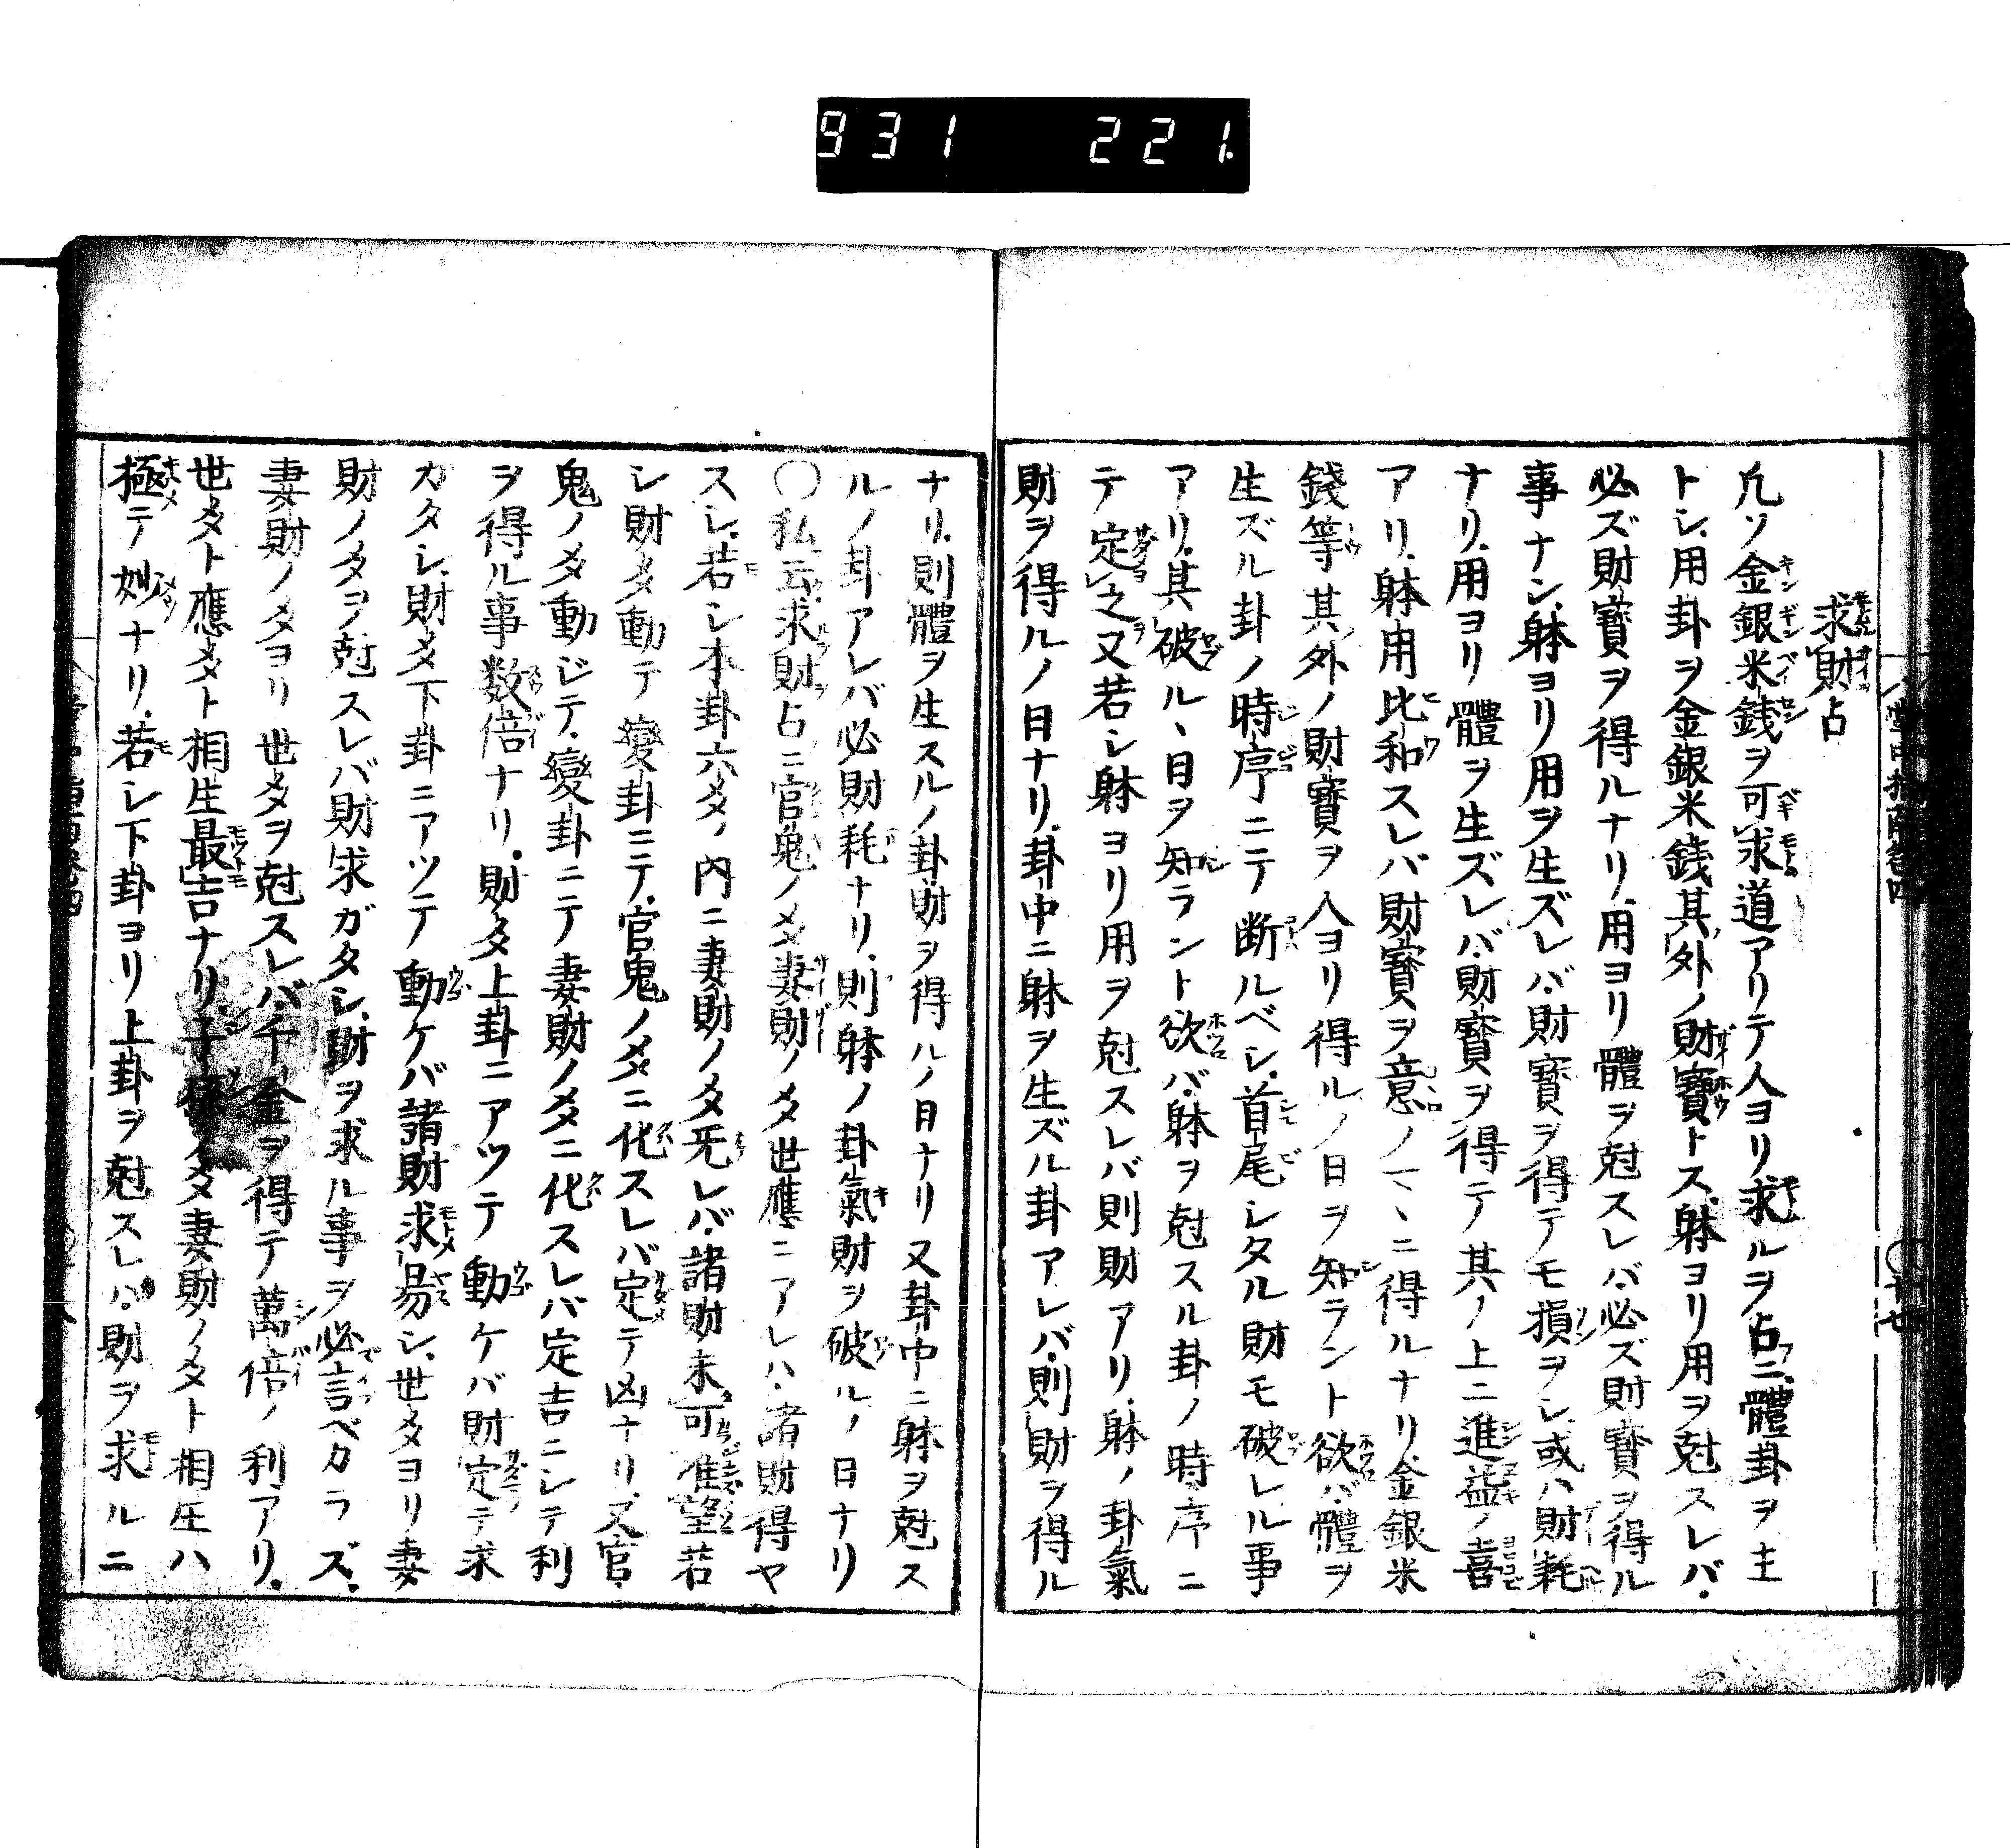 931 221.
求財占
凡ソ金銀米銭ヲ可求道アリテ人ヨリ求ルヲ占ニ體卦ヲ主
トシ用卦ヲ金銀米銭其外ノ財寶トス躰ヨリ用ヲ尅スレバ
必ズ財寶ヲ得ルナリ用ヨリ體ヲ尅スレバ必ズ財寶ヲ得ル
事ナシ躰ヨリ用ヲ生ズレバ財寶ヲ得テモ損ヲシ或ハ財耗
ナリ用ヨリ體ヲ生ズレバ財寶ヲ得テ其ノ上ニ進益ノ喜
アリ躰用比和スレバ財寶ヲ意ノマヽニ得ルナリ金銀米
錢等其外ノ財寶ヲ人ヨリ得ルノ日ヲ知ラント欲バ體ヲ
生ズル卦ノ時序ニテ断ルベシ首尾シタル財モ破レル事
アリ其破ルヽ日ヲ知ラント欲バ躰ヲ尅スル卦ノ時序ニ
テ定之又若シ躰ヨリ用ヲ尅スレバ則財アリ躰ノ卦氣
財ヲ得ルノ日ナリ卦中ニ躰ヲ生ズル卦アレバ則財ヲ得ル
ナリ則體ヲ生スルノ卦財ヲ得ルノ日ナリ又卦中ニ躰ヲ尅ス
ルノ卦アレバ必財耗ナリ則躰ノ卦氣財ヲ破ルノ日ナリ
〇私云求財占ニ官鬼ノ爻妻財ノ爻世應ニアレハ諸財得ヤ
スシ若シ本卦六爻ノ内ニ妻財ノ爻旡レバ諸財未可准望若
シ財爻動テ變卦ニテ官鬼ノ爻ニ化スレバ定テ凶ナリ又官
鬼ノ爻動ジテ變卦ニテ妻財ノ爻ニ化スレバ定吉ニシテ利
ヲ得ル事数倍ナリ財爻上卦ニアツテ動ケバ財定テ求
カタシ財爻下卦ニアツテ動ケバ諸財求易シ世爻ヨリ妻
財ノ爻ヲ尅スレバ財求ガタシ財ヲ求ル事ヲ必言ベカラズ
妻財ノ爻ヨリ世爻ヲ尅スレバ千金ヲ得テ萬倍ノ利アリ
世爻ト應爻ト相生最吉ナリ子孫ノ爻妻財ノ爻ト相生ハ
極テ妙ナリ若シ下卦ヨリ上卦ヲ尅スレハ財ヲ求ルニ